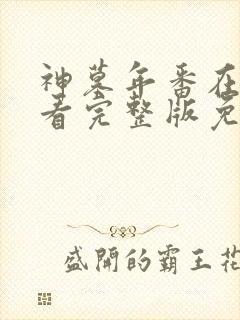 神墓年番在
看完整版免
盛開的霸王花